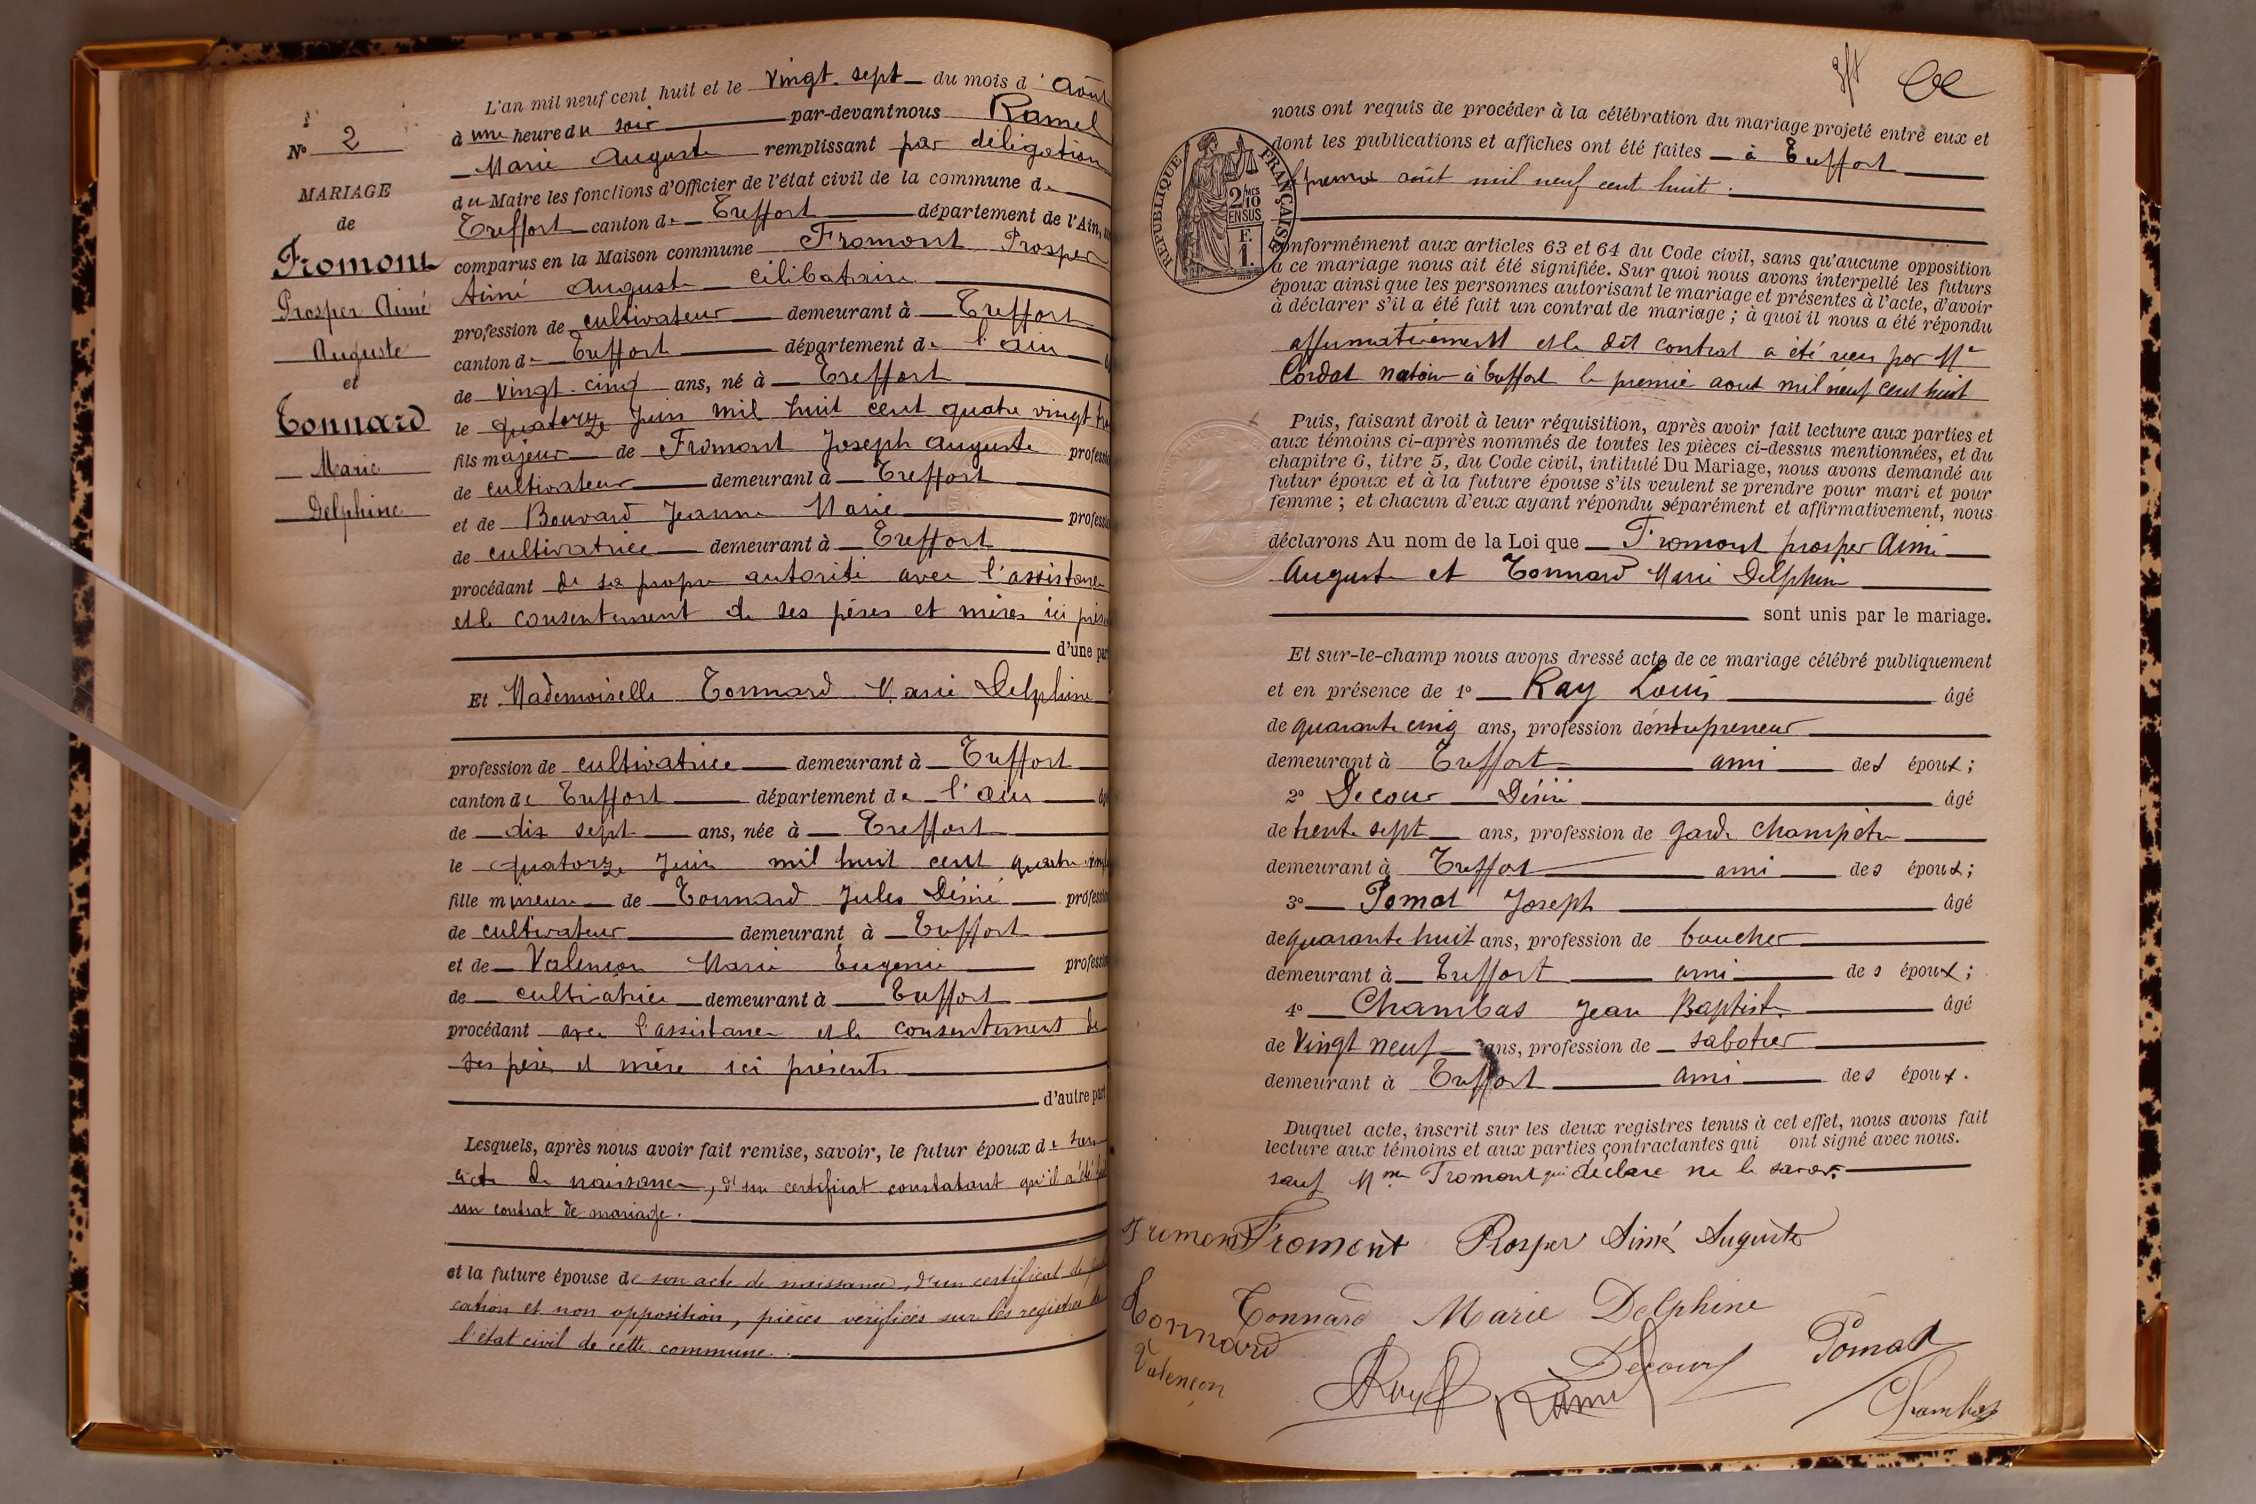 N° 2
MARIAGE
de
Fromont
Prosper Aimé
Auguste
et
Tonnard
Marie
Delphine
L'an mil neuf cent huit et le vingt sept du mois d'Août
à une heure du soir par-devant nous Ramel
Marie Auguste remplissant par délégation
du Maire les fonctions d'Officier de l'état civil de la commune de
Treffort canton de Treffort département de l'Ain,
comparus en la Maison commune Fromont Prosper
Aimé Auguste célibataire
profession de cultivateur demeurant à Treffort
canton de Treffort département de l'ain
de vingt-cinq ans, né à Treffort
le quatorze Juin mil huit cent quatre vingt
fils majeur de Fromont Joseph Auguste profess
de cultivateur demeurant à Treffort
et de Bouvard Jeanne Marie profess
de cultivatrice demeurant à Treffort
procédant de sa propre autorité avec l'assistance
et le consentement de ses péres et méres ici
d'une par
Et Mademoiselle Tonnard Marie Delphine
profession de cultivatrice demeurant à Treffort
canton de Treffort département de l'ain
de dix sept ans, née à Treffort
le quatorze Juin mil huit cent quatre
fille mineure de Tonnard Jules Désiré profession
de cultivateur demeurant à Treffort
et de Valençon Marie Eugénie profession
de cultivatrice demeurant à Treffort
procédant avec l'assistance et le consentement de
ses pére et mére ici présents
d'autre part
Lesquels, après nous avoir fait remise, savoir, le futur époux de son
acte de naissance, d'un certificat constatant qu'il a été
un contrat de mariage.
et la future épouse de son acte de naissance, d'un certificat de
cation et non opposition, pièces vérifiées sur les registres de
l'état civil de cette commune.
nous ont requis de procéder à la célébration du mariage projeté entre eux et
dont les publications et affiches ont été faites à Treffort
le premier août mil neuf cent huit.
RÉPUBLIQUE FRANÇAISE
2/10 EN SUS
F.
1.
conformément aux articles 63 et 64 du Code civil, sans qu'aucune opposition
à ce mariage nous ait été signifiée. Sur quoi nous avons interpellé les futurs
époux ainsi que les personnes autorisant le mariage et présentes à l'acte, d'avoir
à déclarer s'il a été fait un contrat de mariage ; à quoi il nous a été répondu
affirmativement et le dit contrat a été reçu par Me
Cordat notaire à Treffort le premier aout mil neuf cent huit
Puis, faisant droit à leur réquisition, après avoir fait lecture aux parties et
aux témoins ci-après nommés de toutes les pièces ci-dessus mentionnées, et du
chapitre 6, titre 5, du Code civil, intitulé Du Mariage, nous avons demandé au
futur époux et à la future épouse s'ils veulent se prendre pour mari et pour
femme ; et chacun d'eux ayant répondu séparément et affirmativement, nous
déclarons Au nom de la Loi que Fromont prosper Aimé
Auguste et Tonnard Marie Delphine
sont unis par le mariage.
Et sur-le-champ nous avons dressé acte de ce mariage célébré publiquement
et en présence de 1° Ray Louis âgé
de quarante cinq ans, profession d'entrepreneur
demeurant à Treffort ami des époux ;
2° Decour Désiré âgé
de trente sept ans, profession de garde champêtre
demeurant à Treffort ami des époux ;
3° Pomat Joseph âgé
de quarante huit ans, profession de boucher
demeurant à Treffort ami des époux ;
4° Chambas Jean Baptiste âgé
de vingt neuf ans, profession de sabotier
demeurant à Treffort ami des époux.
Duquel acte, inscrit sur les deux registres tenus à cet effet, nous avons fait
lecture aux témoins et aux parties contractantes qui ont signé avec nous.
sauf Mme Fromont qui déclare ne le savoir.
Fromont Froment Prosper Aimé Auguste
Tonnard Tonnard Marie Delphine
Valençon
Ray Ramel Decour Pomat
Chambas